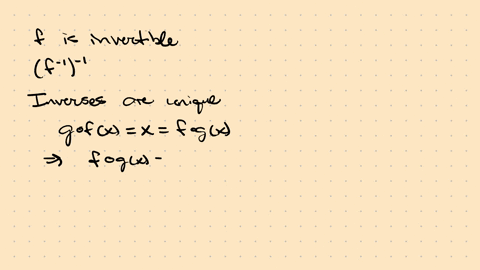 f is invertible
(f⁻¹)⁻¹
Inverses are unique
g∘f(x) = x = f∘g(x)
⇒ f∘g(x) -